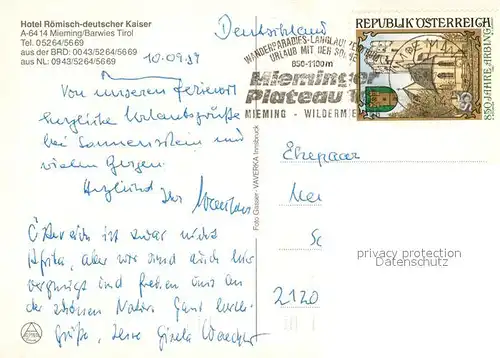 Hotel Römisch-deutscher Kaiser
A-6414 Mieming/Barwies Tirol
Tel. 05264/5669
aus der BRD: 0043/5264/5669
aus NL: 0943/5264/5669
Deutschland
10.09.89
Von unseren Ferienort
herzliche Urlaubsgrüße
bei Sonnenschein und
vielen
Herzlichst
Ihr
Österreich ist zwar nicht
Afrika, aber wir sind auch hier
vergnügt und freuen uns an
der schönen Natur. Ganz herzl.
Grüße, Ihre Gisela
Foto Gasser - VAVERKA Innsbruck
WANDERPARADIES-LANGLAUF
URLAUB MIT DER
850-1100m
Mieminger
Plateau
MIEMING - WILDERMIE
REPUBLIK ÖSTERREICH
850 JAHRE ARBING
Ehepaar
2120
privacy protection
Datenschutz